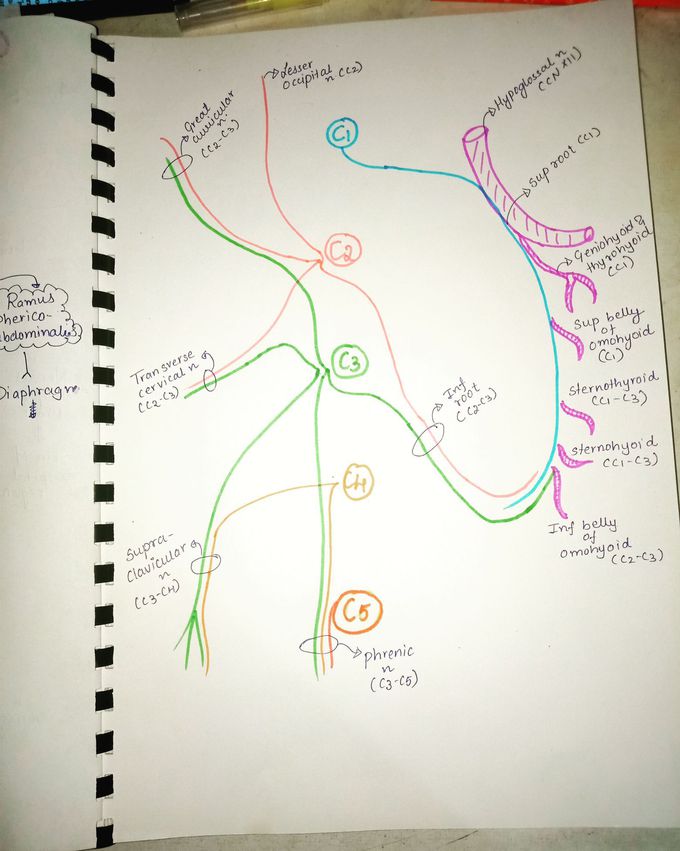 Lesser
occipital
n (C2)
Great
auricular
n.
(C2-C3)
C1
Hypoglossal n
(CN XII)
Sup root (C1)
Geniohyoid &
thyrohyoid
(C1)
C2
Sup belly
of
omohyoid
(C1)
Ramus
abdominales
Diaphragm
Transverse
cervical n
(C2-C3)
C3
Inf
root
(C2-C3)
Sternothyroid
(C1-C3)
sternohyoid
(C1-C3)
C4
Inf belly
of
omohyoid
(C2-C3)
Supra-
clavicular
n
(C3-C4)
C5
phrenic
n
(C3-C5)